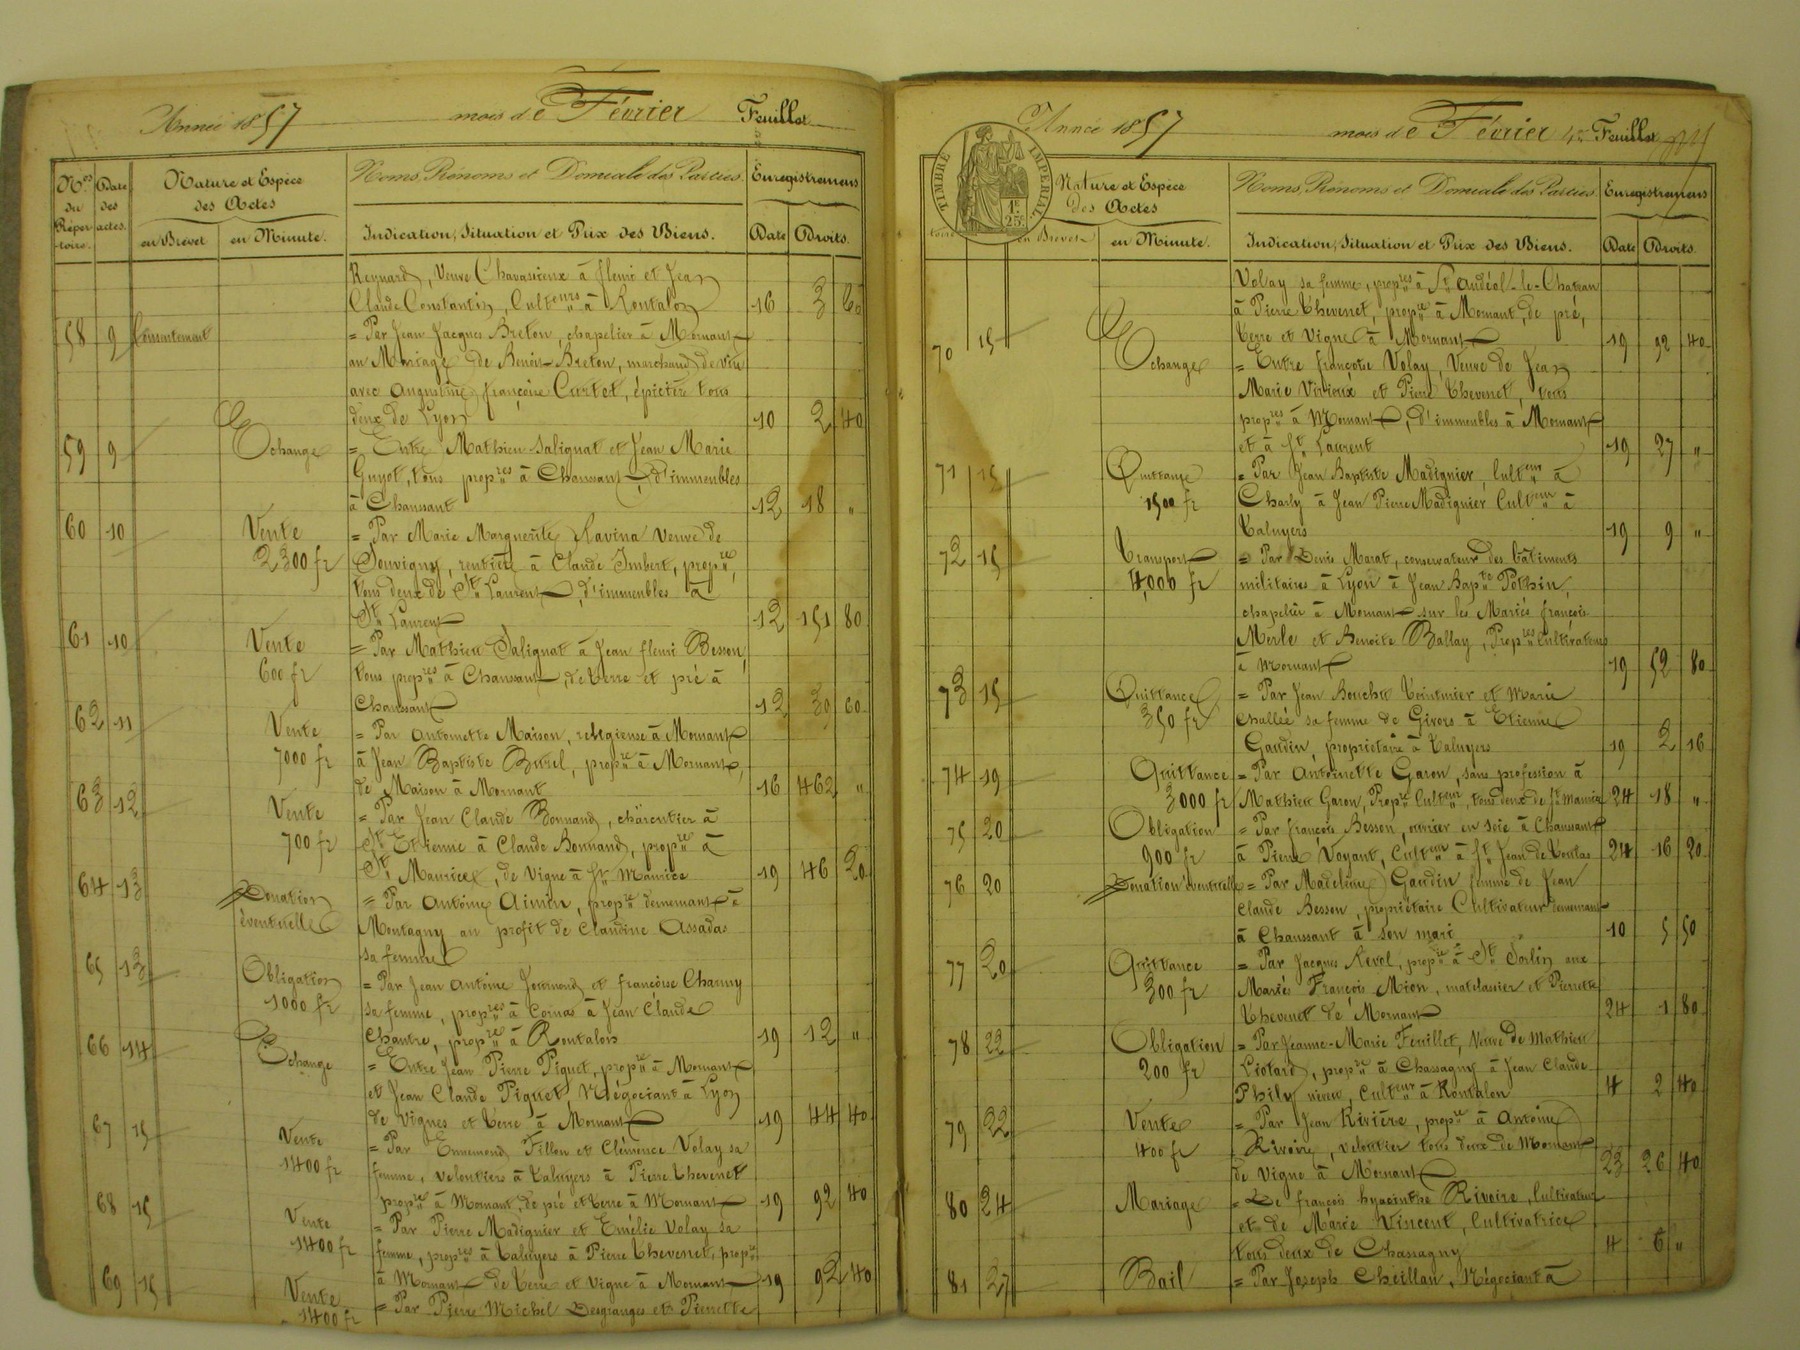 Année 1857 mois de Février Feuillet
Nos du Répertoire. Date des actes. Nature et Espèce des Actes Noms, Prénoms et Domicile des Parties. Enregistremens
en Brevet en Minute. Indication, Situation et Prix des Biens. Date Droits.
Reynard, Veuve Chavassieux à fleuri et Jean
Claude Constantin, Cultrs à Rontalon 16 3 60
58 9 Consentement = Par Jean Jacques Breton, chapelier à Mornant
au Mariage de Benoit Breton, marchand de vin
avec Augustine françoise Curtet, épicière tous
deux de Lyon 10 2 40
59 9 Echange = Entre Mathieu Salignat et Jean Marie
Guyot, tous propres à Chaussant, d'immeubles
à Chaussant 12 18 "
60 10 Vente = Par Marie Marguerite Ravina Veuve de
2300 fr Souvigny, rentière à Claude Imbert, propre,
tous deux de St Laurent, d'immeubles à
St Laurent 12 151 80
61 10 Vente = Par Mathieu Salignat à Jean fleuri Besson,
600 fr tous propres à Chaussant, de terre et pré à
Chaussant 12 39 60
62 11 Vente = Par Antoinette Maison, religieuse à Mornant
7000 fr à Jean Baptiste Burel, propre à Mornant,
de Maison à Mornant 16 462 "
63 12 Vente = Par Jean Claude Bonnand, charpentier à
700 fr St Etienne à Claude Bonnand, propre à
St Maurice, de Vigne à St Maurice 19 46 20
64 13 Donation = Par Antoine Aimin, propre demeurant à
éventuelle Montagny au profit de Claudine Assadas
sa femme
65 13 Obligation = Par Jean Antoine Journoud et françoise Charmy
1000 fr sa femme, propres à Cornas à Jean Claude
Chantre, propre à Rontalon 19 12 "
66 14 Echange = Entre Jean Pierre Piquet, propre à Mornant
et Jean Claude Piquet, Négociant à Lyon
de Vignes et terre à Mornant 19 44 40
67 15 Vente = Par Ennemond Fillon et Clémence Volay sa
1400 fr femme, veloutiers à Taluyers à Pierre Thevenet
propre à Mornant, de pré et terre à Mornant 19 92 40
68 15 Vente = Par Pierre Madignier et Emélie Volay sa
1400 fr femme, propres à Taluyers à Pierre Thevenet, propre
à Mornant de terre et Vigne à Mornant 19 92 40
69 15 Vente = Par Pierre Michel Desgranges et Pierrette
1400 fr
Année 1857 mois de Février 4e Feuillet
TIMBRE IMPERIAL
1F. 25c.
Nature et Espèce des Actes Noms, Prénoms et Domicile des Parties Enregistremens
toire en Brevet en Minute. Indication, Situation et Prix des Biens. Date Droits.
Volay sa femme, propres à St Andéol-le-Château
à Pierre Thévenet, propre à Mornant, de pré,
terre et Vigne à Mornant 19 92 40
70 15 Echange = Entre françoise Volay, Veuve de Jean
Marie Virieux et Pierre Thevenet, tous
propres à Mornant, d'immeubles à Mornant
et à St Laurent 19 27 "
71 15 Quittance = Par Jean Baptiste Madignier, Culteur à
1500 fr Charly à Jean Pierre Madignier Culteur à
Taluyers 19 9 "
72 15 Transport = Par Denis Marat, conservateur des bâtiments
4,000 fr militaires à Lyon à Jean Bapte Pothin,
chapelier à Mornant sur les Mariés françois
Merle et Benoite Ballay, Propres Cultivateurs
à Mornant 19 52 80
73 15 Quittance = Par Jean Bouchu teinturier et Marie
350 fr Challée sa femme de Givors à Etienne
Gaudin, propriétaire à Taluyers 19 2 16
74 19 Quittance = Par Antoinette Garon, sans profession à
3000 fr Mathieu Garon, Propre Culteur, tous deux de St Maurice 24 18 "
75 20 Obligation = Par françois Besson, ouvrier en soie à Chaussant
900 fr à Pierre Voyant, Culteur à St Jean de Toulas 24 16 20
76 20 Donation éventuelle = Par Madeleine Gaudin femme de Jean
Claude Besson, propriétaire Cultivateur demeurant
à Chaussant à son mari 10 5 50
77 20 Quittance = Par Jacques Revol, propre à St Sorlin aux
300 fr Mariés François Mion, matelassier et Pierrette
Thevenet de Mornant 24 1 80
78 22 Obligation = Par Jeanne-Marie Feuillet, Veuve de Mathieu
200 fr Liotard, propre à Chassagny à Jean Claude
Phily neveu, Culteur à Rontalon 4 2 40
79 22 Vente = Par Jean Rivière, propre à Antoine
400 fr Rivoire, veloutier tous deux de Mornant
de Vigne à Mornant 23 26 40
80 24 Mariage = De françois hyacinthe Rivoire, Cultivateur
et de Marie Vincent, Cultivatrice
tous deux de Chassagny 4 6 "
81 27 Bail = Par Joseph Cheillan, Négociant à